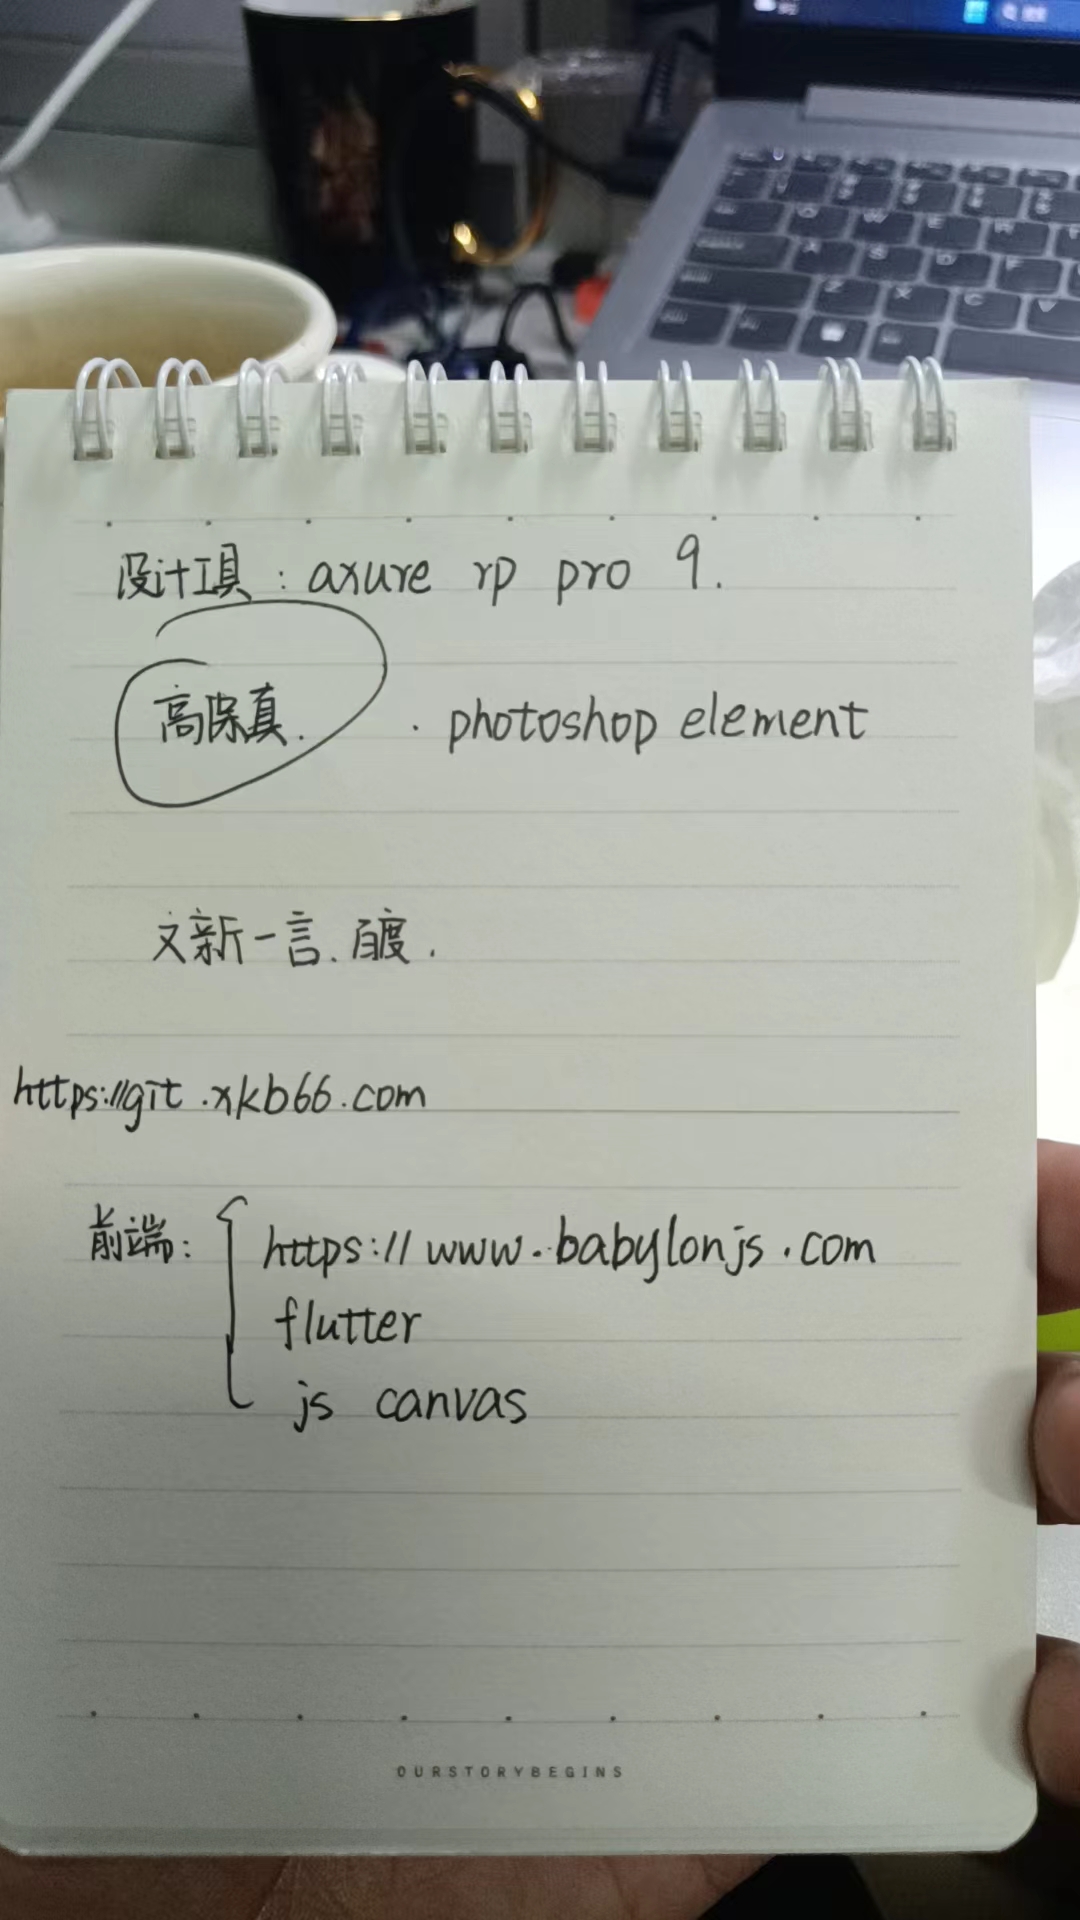 设计工具：axure rp pro 9.
高保真. . photoshop element
文新一言. 百度.
https://git.xkb66.com
前端：https://www.babylonjs.com
flutter
js canvas
OURSTORYBEGINS